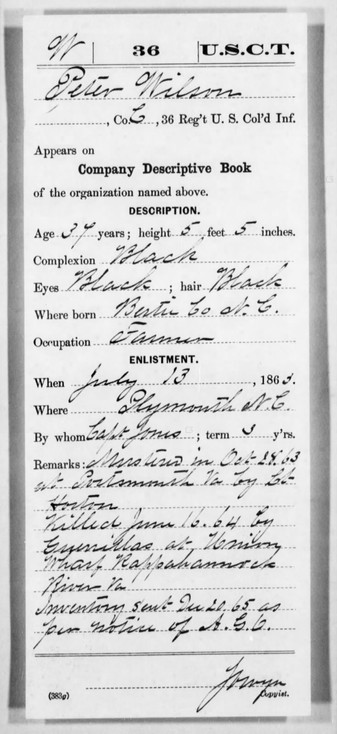 W | 36 | U.S.C.T.
Peter Wilson
, Co. C, 36 Reg't U. S. Col'd Inf.
Appears on
Company Descriptive Book
of the organization named above.
DESCRIPTION.
Age 37 years; height 5 feet 5 inches.
Complexion Black
Eyes Black ; hair Black
Where born Bertie Co N.C.
Occupation Farmer
ENLISTMENT.
When July 13, 1863.
Where Plymouth N.C.
By whom Capt Jones ; term 3 y'rs.
Remarks: Mustered in Oct 28. 63
at Portsmouth Va by Lt
Horton
Killed June 16. 64 by
Guerillas at Union
Wharf Rappahannock
River Va
Inventory sent Dec 20. 65 as
per notice of A.G.O.
(383g) Copyist.